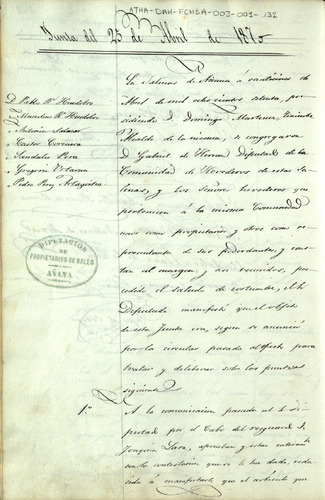 ATHA-DAH-FCHSA-003-001-132
Junta del 25 de Abril de 1870
D. Pablo Rz Huidobro
Marcelino Rz Huidobro
Antonio Salazar
Castor Corcuera
Sandalio Pera
Gregorio Urtaran
Pedro Perez Artaguitia
DIPUTACION
DE
PROPIETARIOS DE SALES
AÑANA
En Salinas de Añana a veinticinco de
Abril de mil ocho cientos setenta, pre-
sidiendo D. Domingo Martinez Teniente
Alcalde de la misma, se congregaron
D. Gabriel de Herran Diputado de la
Comunidad de Herederos de estas Sa-
linas, y los Señores herederos que
pertenecen á la misma Comunidad
unos como propietarios y otros como re-
presentantes de sus poderdantes, y cons-
tan al margen, y asi reunidos, pre-
cedido el saludo de costumbre, el Sr
Diputado manifestó que el objeto
de esta Junta era, segun se anunció
por la circular pasada al efecto para
tratar y deliberar sobre los puntos
siguientes
1º A la comunicacion pasada al Sr Di-
putado por el Cabo del resguardo D.
Joaquin Lara, aprueban y estan enterados
con la contestacion que se le ha dado, redu-
cida á manifestarle que el articulo que